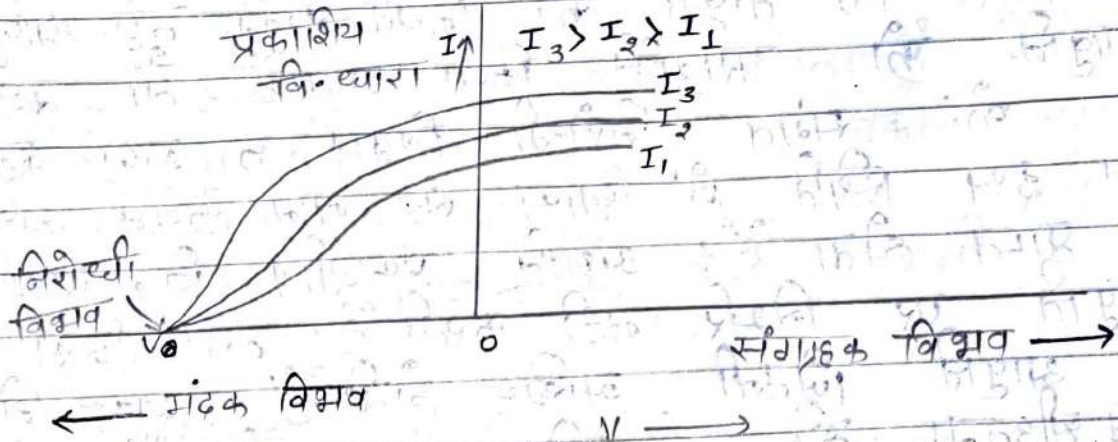 प्रकाशिय
वि॰ धारा
I↑
I₃ > I₂ > I₁
I₃
I₂
I₁
निरोधी
विभव
V₀
0
संग्राहक विभव ⟶
⟵ मंदक विभव
V ⟶